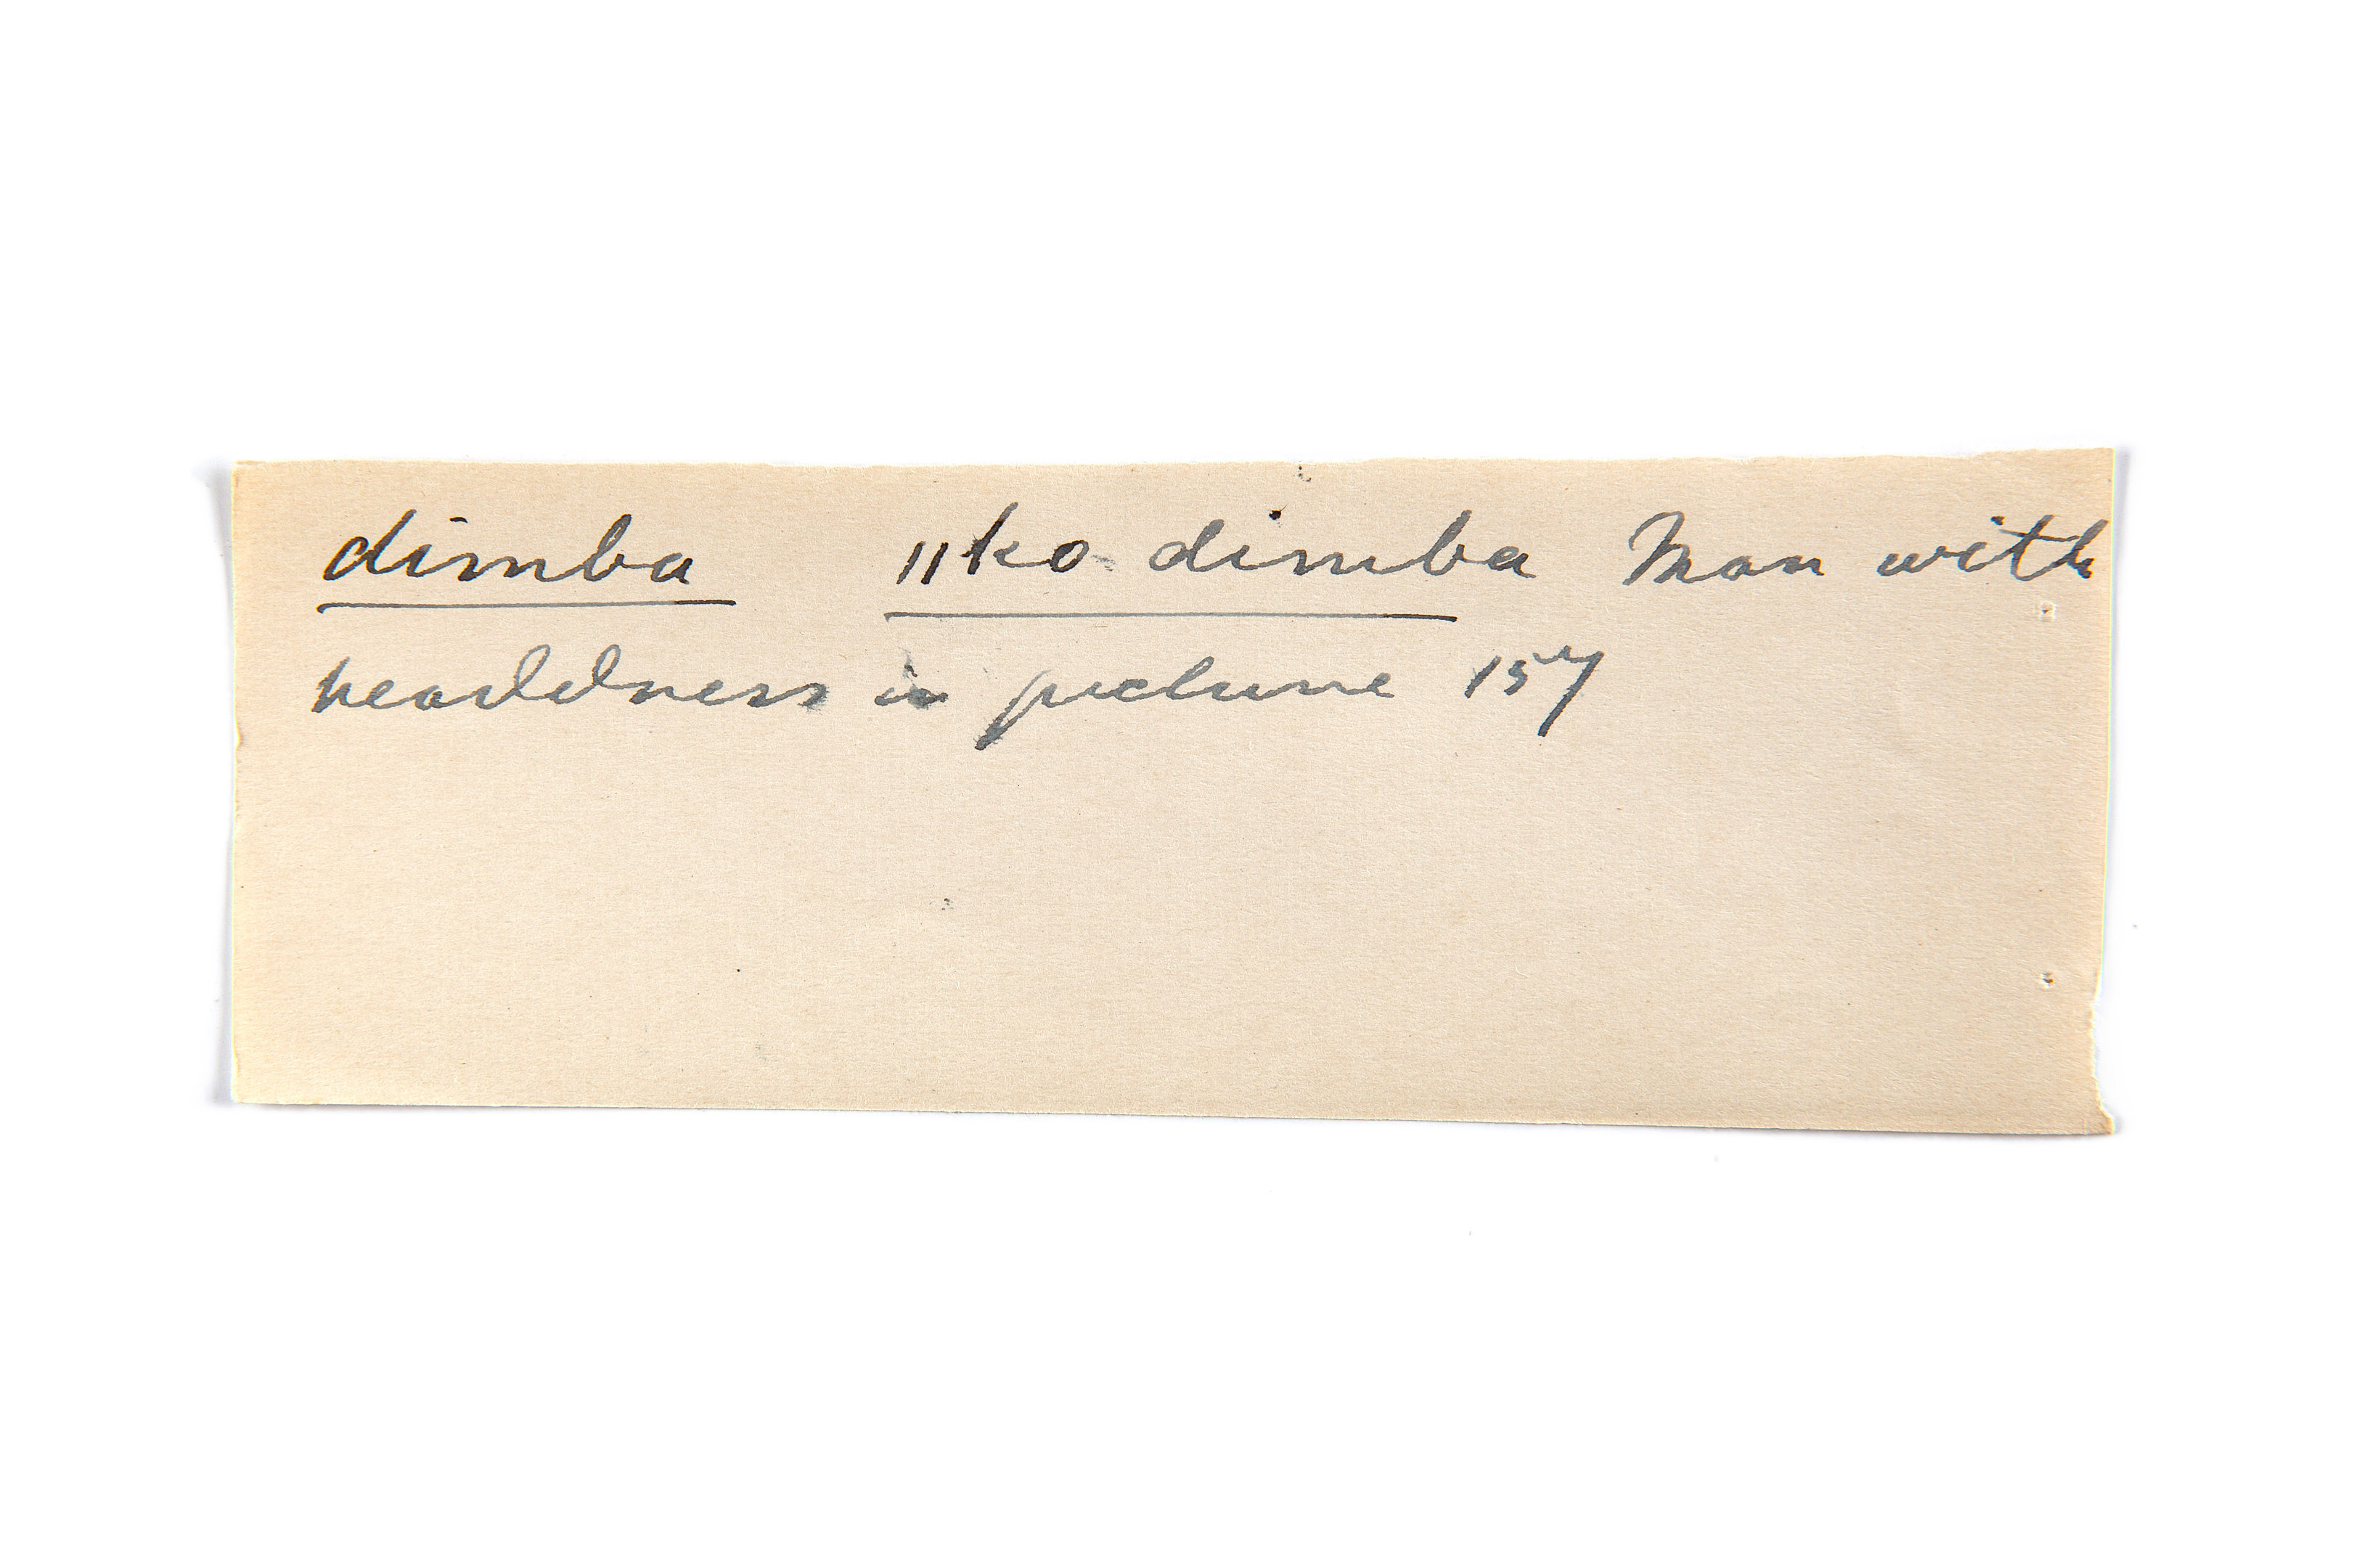 dimba ǁko dimba Man with
headdress in picture 157